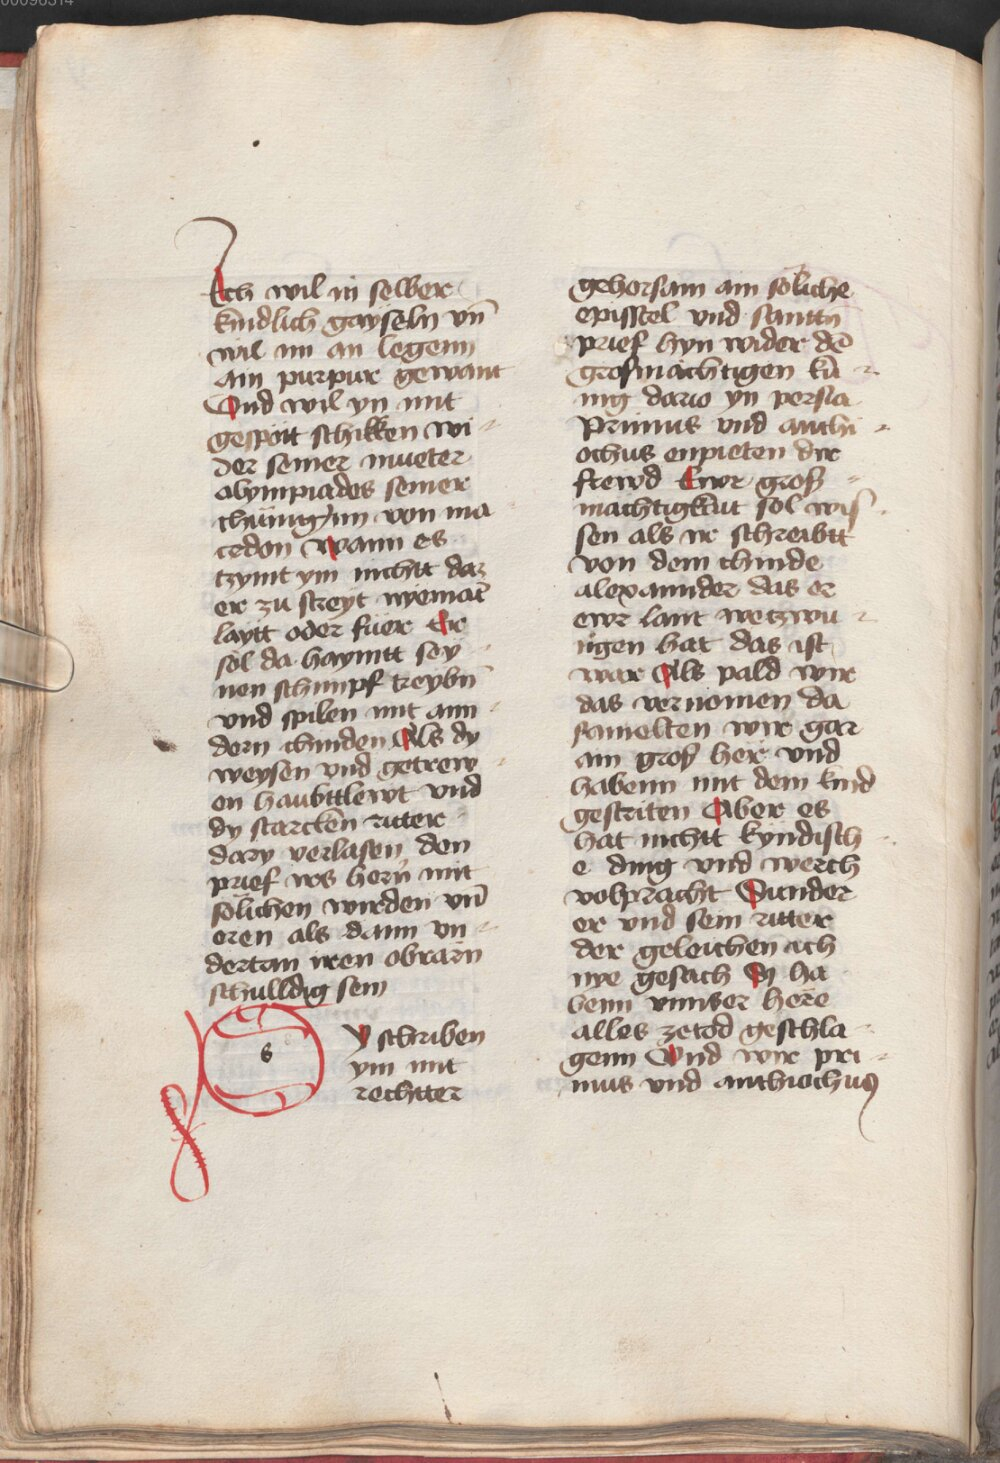 Ich wil in selber
kindlich gayseln vn̄
wil im an legenn
ain purpur gewant
Vnd wil yn mit
gespött schikken wi-
der seiner mueter
olympiades seiner
chünig/inn von ma
cedon Wann es
tzymt ym nichtt daz
er zu streyt nyemāt
laytt oder füer Er
söl da haymtt sey-
nen schimpf treybn̄
vnd spilen mit ann-
dern chinden Als dy
weysen vnd getrew-
en haubttlewt vnd
dy starcken ritter
dary verlasen den
prief irs hern̄ mit
sölichen wirden vn̄
eren als dann vn-
dertan iren obrarn
schulldig sein
s
y schriben
ym mit
rechtter
gehorsam ain söliche
episstel vnd santtn̄
prief hyn wider dē
grosmächtigen kü-
nig dario yn persia
Primus vnd anthi-
ochus enpieten dir
frewd Ewr groß-
mächtigkait sol wis-
sen als ir schreibtt
von dem chinde
alexannder das er
ewr lant wetzwu-
ngen hat das ist
war Als pald wir
das vernomen da
samelten wir gar
ain groß her vnd
habenn mit dem kind
gestriten Aber es
hat nichtt kyndisch-
e ding vnd werch
volpracht Sunder
er vnd sein ritter
der geleichen ich
nye gesach Dy ha
benn vnnser here
alles zetod geschla-
genn Vnd wir pri-
mus vnd anthiochus